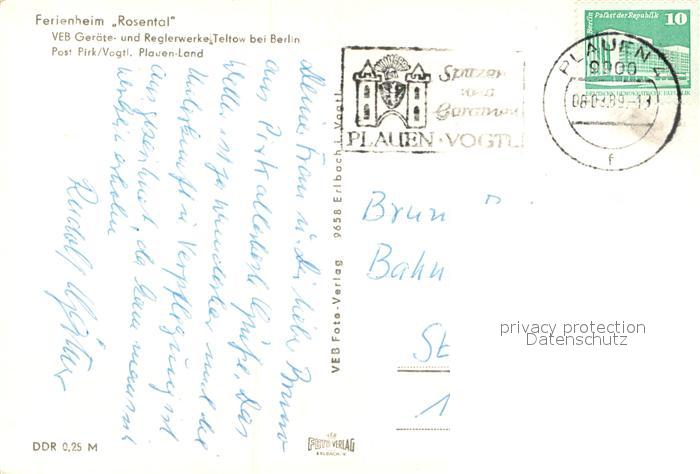 Ferienheim „Rosental"
VEB Geräte- und Reglerwerke, Teltow bei Berlin
Post Pirk/Vogtl. Plauen-Land
Deine Frau u. Dir lieber Bruno
aus Pirk allerbeste Grüße. Das
Wetter ist ja wunderbar und die
Unterkunft u. Verpflegung ist
ausgezeichnet, da kann man sich
erholen.
Rudolf
DDR 0,25 M
VEB Foto-Verlag 9658 Erlbach i. Vogtl.
FOTO VERLAG
ERLBACH. V.
Spitzen
und
Gardinen
PLAUEN · VOGTL.
PLAUEN 1
9900
08.03.89.-13
f
Berlin Palast der Republik
10
DEUTSCHE DEMOKRATISCHE REPUBLIK
Brun
Bahn
1
privacy protection
Datenschutz